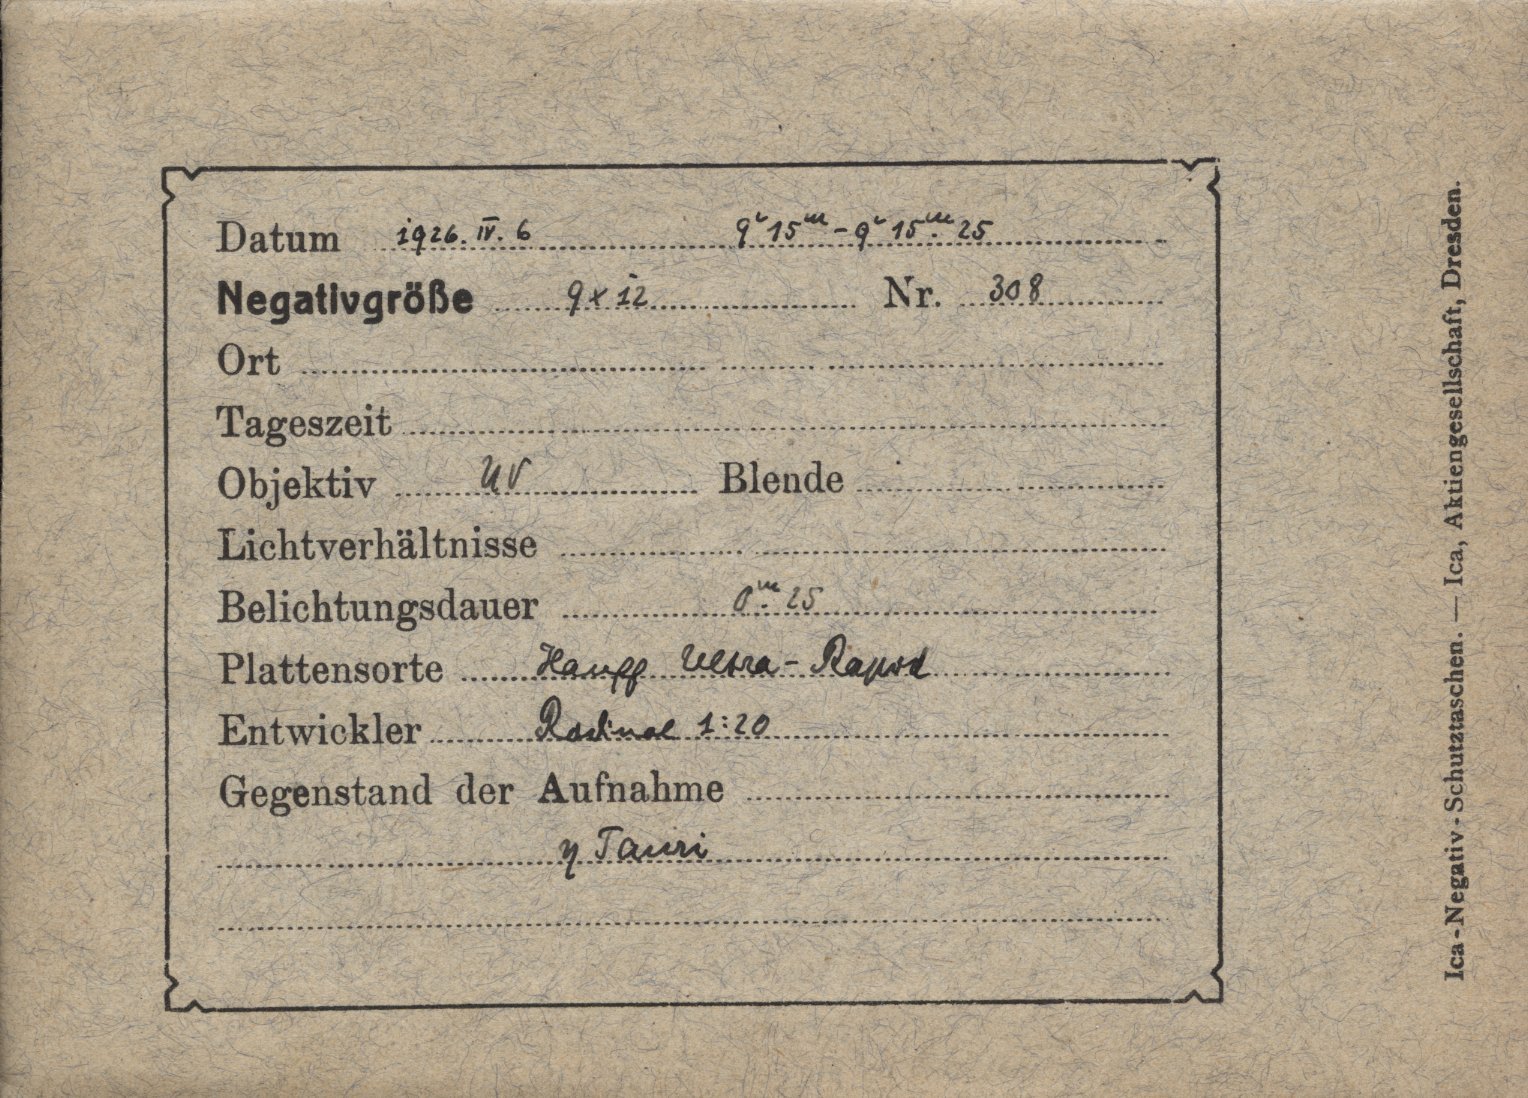 Datum 1926. IV. 6 9ᵘ15ᵐ - 9ᵘ15ᵐ.25
Negativgröße 9 x 12 Nr. 308
Ort
Tageszeit
Objektiv UV Blende
Lichtverhältnisse
Belichtungsdauer 0ᵐ.25
Plattensorte Hauff Ultra-Rapid
Entwickler Rodinal 1:20
Gegenstand der Aufnahme
η Tauri
Ica-Negativ-Schutztaschen. — Ica, Aktiengesellschaft, Dresden.